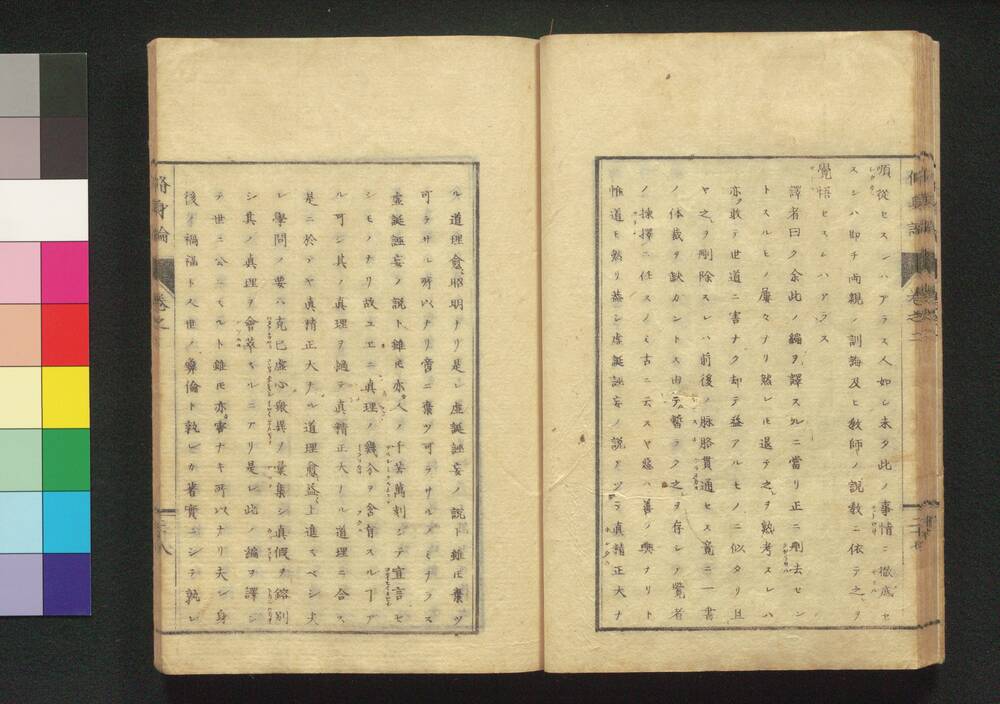 順從セスンハアラス人如シ未タ此ノ事情ニ徹底セ
スシハ即チ両親ノ訓誨及ヒ教師ノ説教ニ依テ之ヲ
覺悟セスンハアラス
譯者曰ク余此ノ編ヲ譯スルニ當リ正ニ刪去セン
トスルモノ屢々ナリ然レ𪜈退テ之ヲ熟考スレハ
亦敢テ世道ニ害ナク却テ益アルモノニ似タリ且
ヤ之ヲ刪除スレハ前後ノ脉胳貫通セス竟ニ一書
ノ体裁ヲ缺カントス由テ暫ラク之ヲ存シノ覽者
ノ揀擇ニ任スノミ古ニ云スヤ惡ハ善ノ輿ナリト
惟道モ然リ蓋シ虚誕誣妄ノ説アツテ真精正大ナ
ル道理愈昭明ナリ是レ虚誕誣妄ノ説ト雖𪜈棄ツ
可ラサル所以ナリ啻ニ棄ツ可ラサルノミナラス
虚誕誣妄ノ説ト雖𪜈亦人ノ千苦萬刻シテ宣言セ
シモノナリ故ユエニ真理ノ幾分ヲ含有スルヿア
ル可シ其ノ真理ヲ過テ真精正大ナル道理ニ合ス
是ニ於テヤ真精正大ナル道理愈益上進スベシ夫
レ學問ノ要ハ克己虚心衆異ヲ彙集シ真假ヲ鎔別
シ其ノ真理ヲ會萃スルニアリ是レ此ノ編ヲ譯シ
テ世ニ公ニスルト雖𪜈亦害ナキ所以ナリ夫レ身
後ノ禍福ト人世ノ彛倫ト孰レカ着實ニシテ孰レ
脩身論
卷之二
二十八